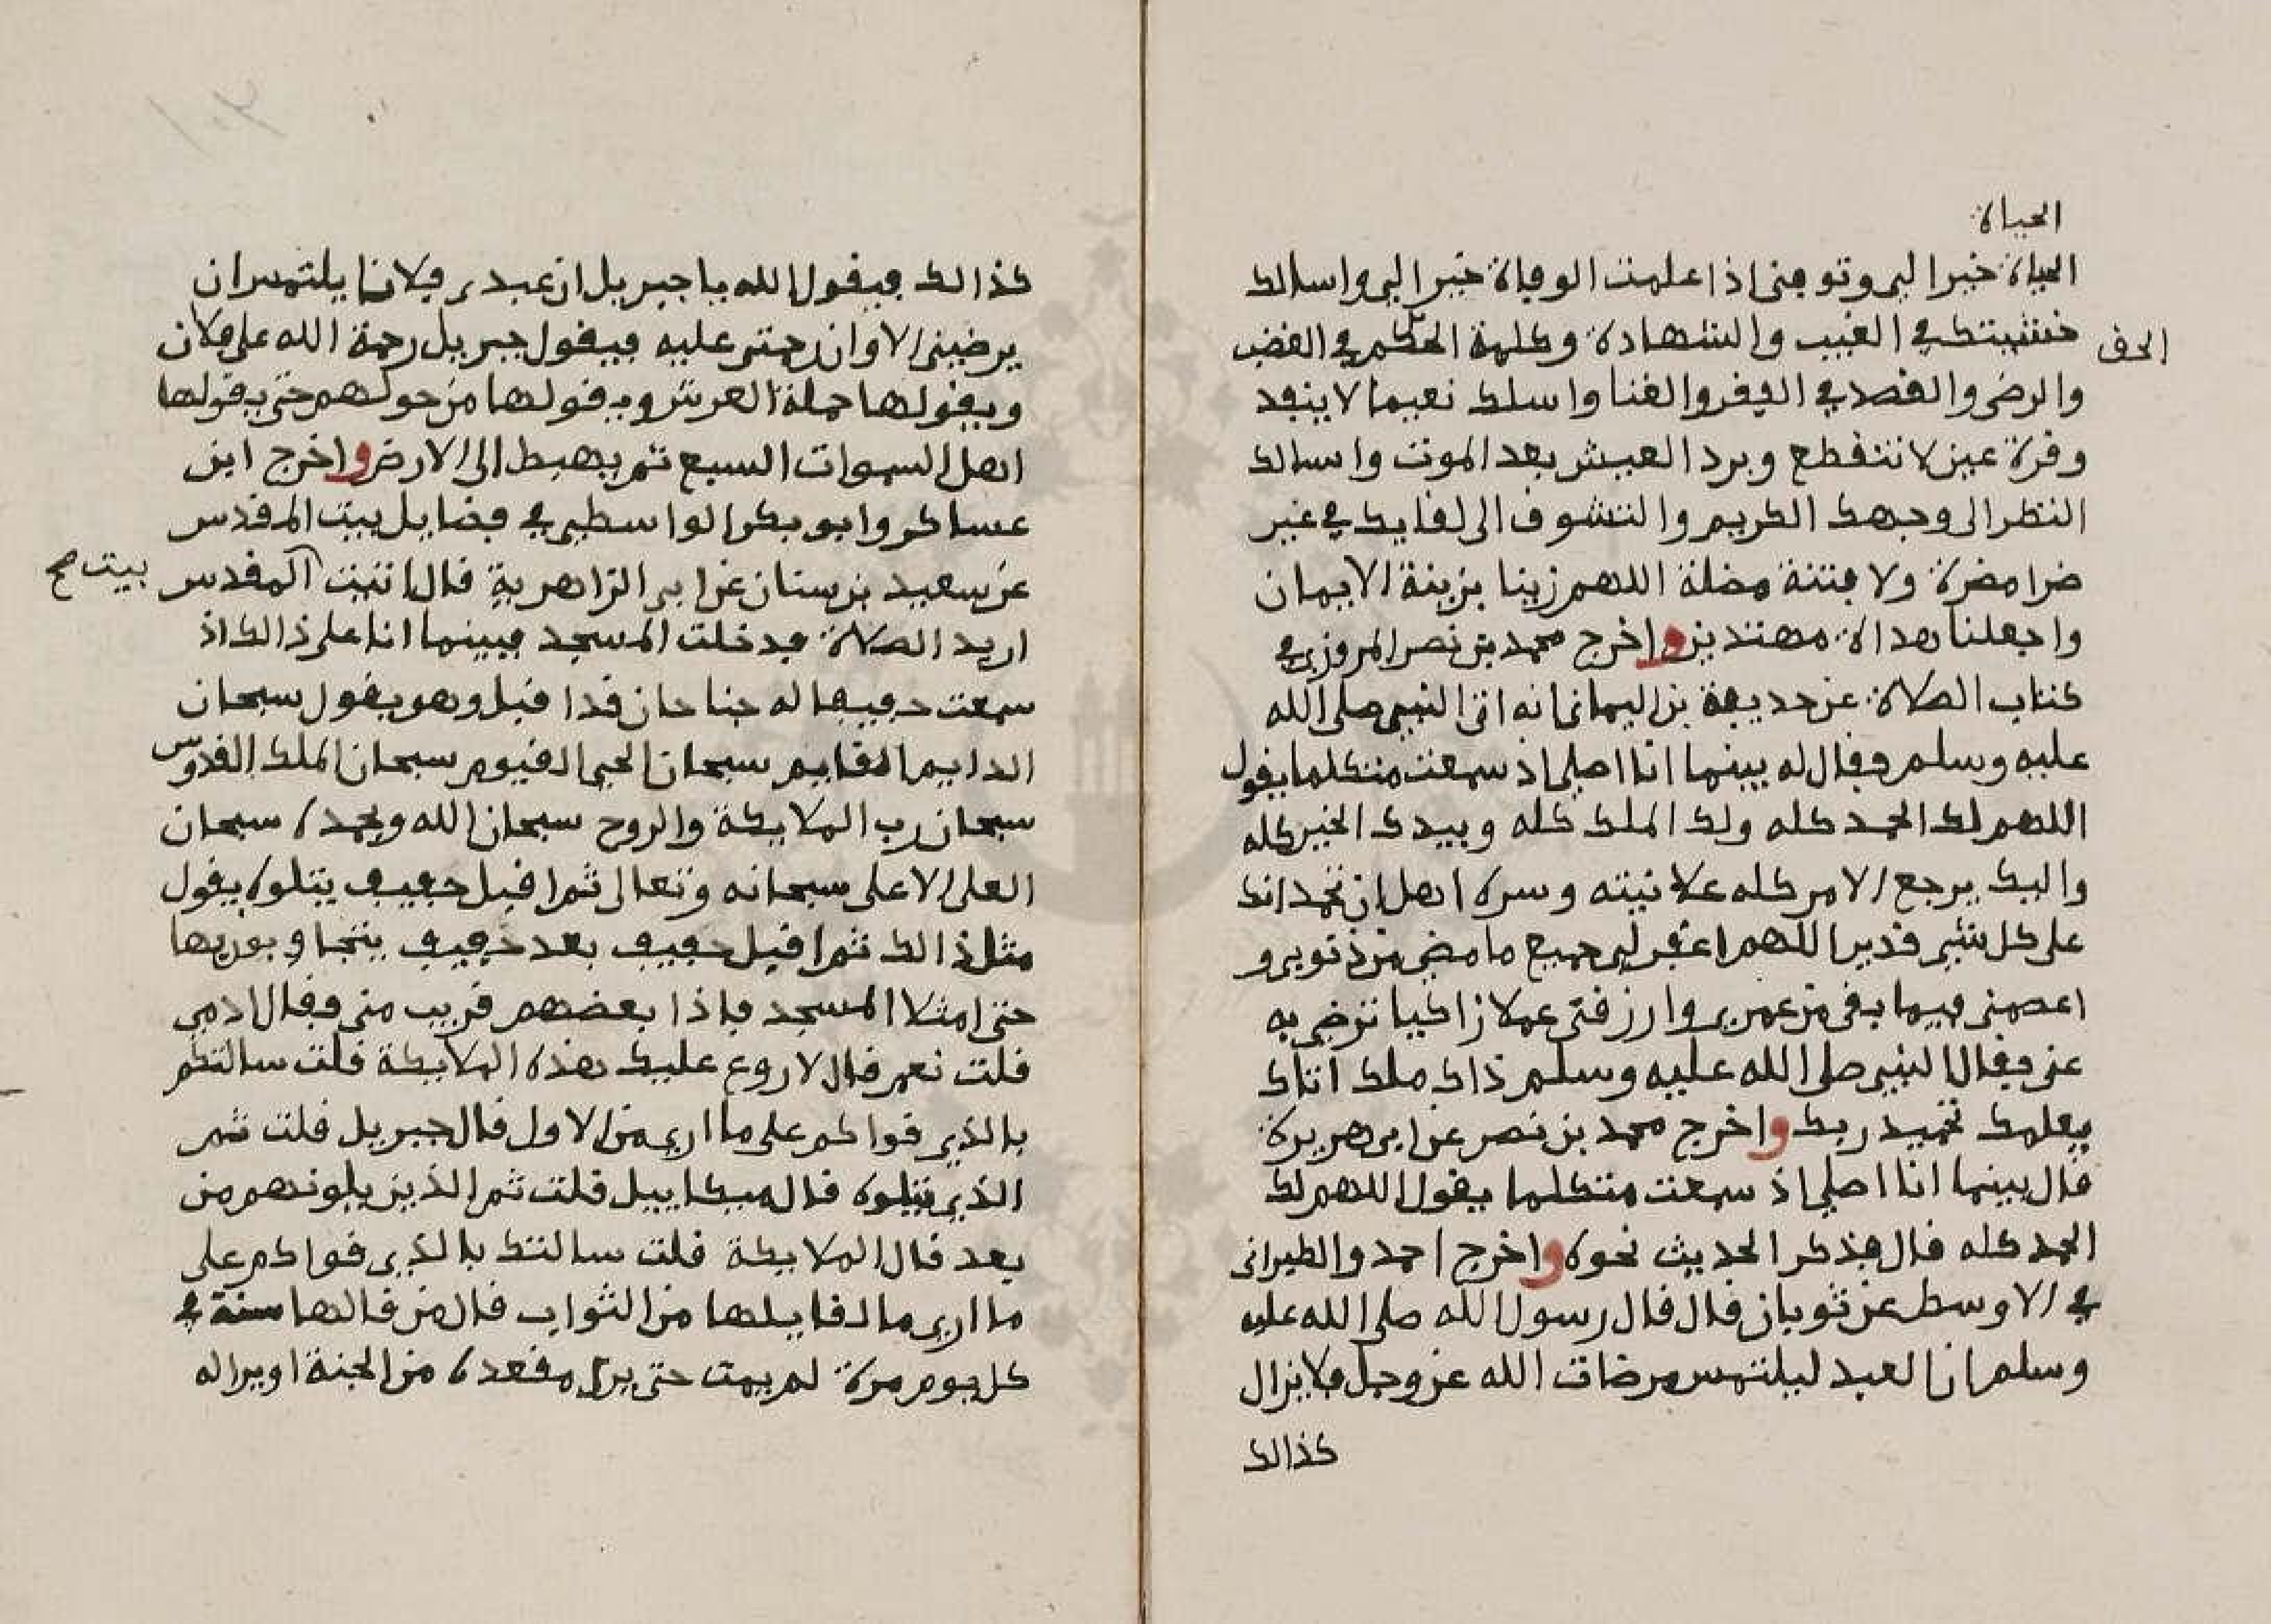 الحياة
الحياة خيرا لي وتوفني اذا علمت الوفاة خيرا لي واسالك
خشيتك في الغيب والشهادة وكلمة الحكم في الغضب
الحق
والرضى والقصد في الفقر والغنا واسلك نعيما لا ينفد
وقرة عين لا تنقطع وبرد العيش بعد الموت واسالك
النظر الى وجهك الكريم والتشوق الى لقايك في غير
ضرا مضرة ولا فتنة مضلة اللهم زينا بزينة الايمان
واجعلنا هداة مهتدين واخرج محمد بن نصر المروزي في
كتاب الصلاة عن حديفة بن اليمان انه اتى النبي صلى الله
عليه وسلم فقال له بينما انا اصلي اذ سمعت متكلما يقول
اللهم لك الحمد كله ولك الملك كله وبيدك الخير كله
واليك يرجع الامر كله علانيته وسره اهل ان تحمد انك
على كل شيء قدير اللهم اغفر لي جميع ما مضى من ذنوبي و
اعصمني فيما بقي من عمري وارزقني عملا زاكيا ترضى به
عني فقال النبي صلى الله عليه وسلم ذاك ملك اتاك
يعلمك تحميد ربك واخرج محمد بن نصر عن ابي هريرة
قال بينما انا اصلي اذ سمعت متكلما يقول اللهم لك
الحمد كله قال فذكر الحديث نحوه واخرج احمد والطبراني
في الاوسط عن ثوبان قال قال رسول الله صلى الله عليه
وسلم ان العبد ليلتمس مرضات الله عز وجل فلا يزال
كذالك
كذالك فيقول الله يا جبريل ان عبدي فلانا يلتمس ان
يرضيني الا وان رحمتي عليه فيقول جبريل رحمة الله على فلان
ويقولها حملة العرش ويقولها من حولهم حتى يقولها
اهل السموات السبع ثم يهبط الى الارض واخرج ابن
عساكر وابو بكر الواسطي في فضايل بيت المقدس
عن سعيد بن سنان عن ابي الزاهرية قال اتيت المقدس
بيت صح
اريد الصلاة فدخلت المسجد فبينما انا على ذالك اذ
سمعت حفيفا له جناحان قد اقبل وهو يقول سبحان
الدايم القايم سبحان الحي القيوم سبحان الملك القدوس
سبحان رب الملايكة والروح سبحان الله وبحمده سبحان
العلي الاعلى سبحانه وتعالى ثم اقبل حفيف يتلوه يقول
مثل ذالك ثم اقبل حفيف بعد حفيف يتجاوبون بها
حتى امتلا المسجد فاذا بعضهم قريب مني فقال ادمي
قلت نعم قال لا روع عليك هذه الملايكة قلت سالتكم
بالذي قواكم على ما ارى من الاول قال جبريل قلت ثم
الذي يتلوه قال ميكاييل قلت ثم الذين يلونهم من
بعد قال الملايكة قلت سالتك بالذي قواكم على
ما ارى ما لقايلها من الثواب قال من قالها سنة في
كل يوم مرة لم يمت حتى يرى مقعده من الجنة او يرا له